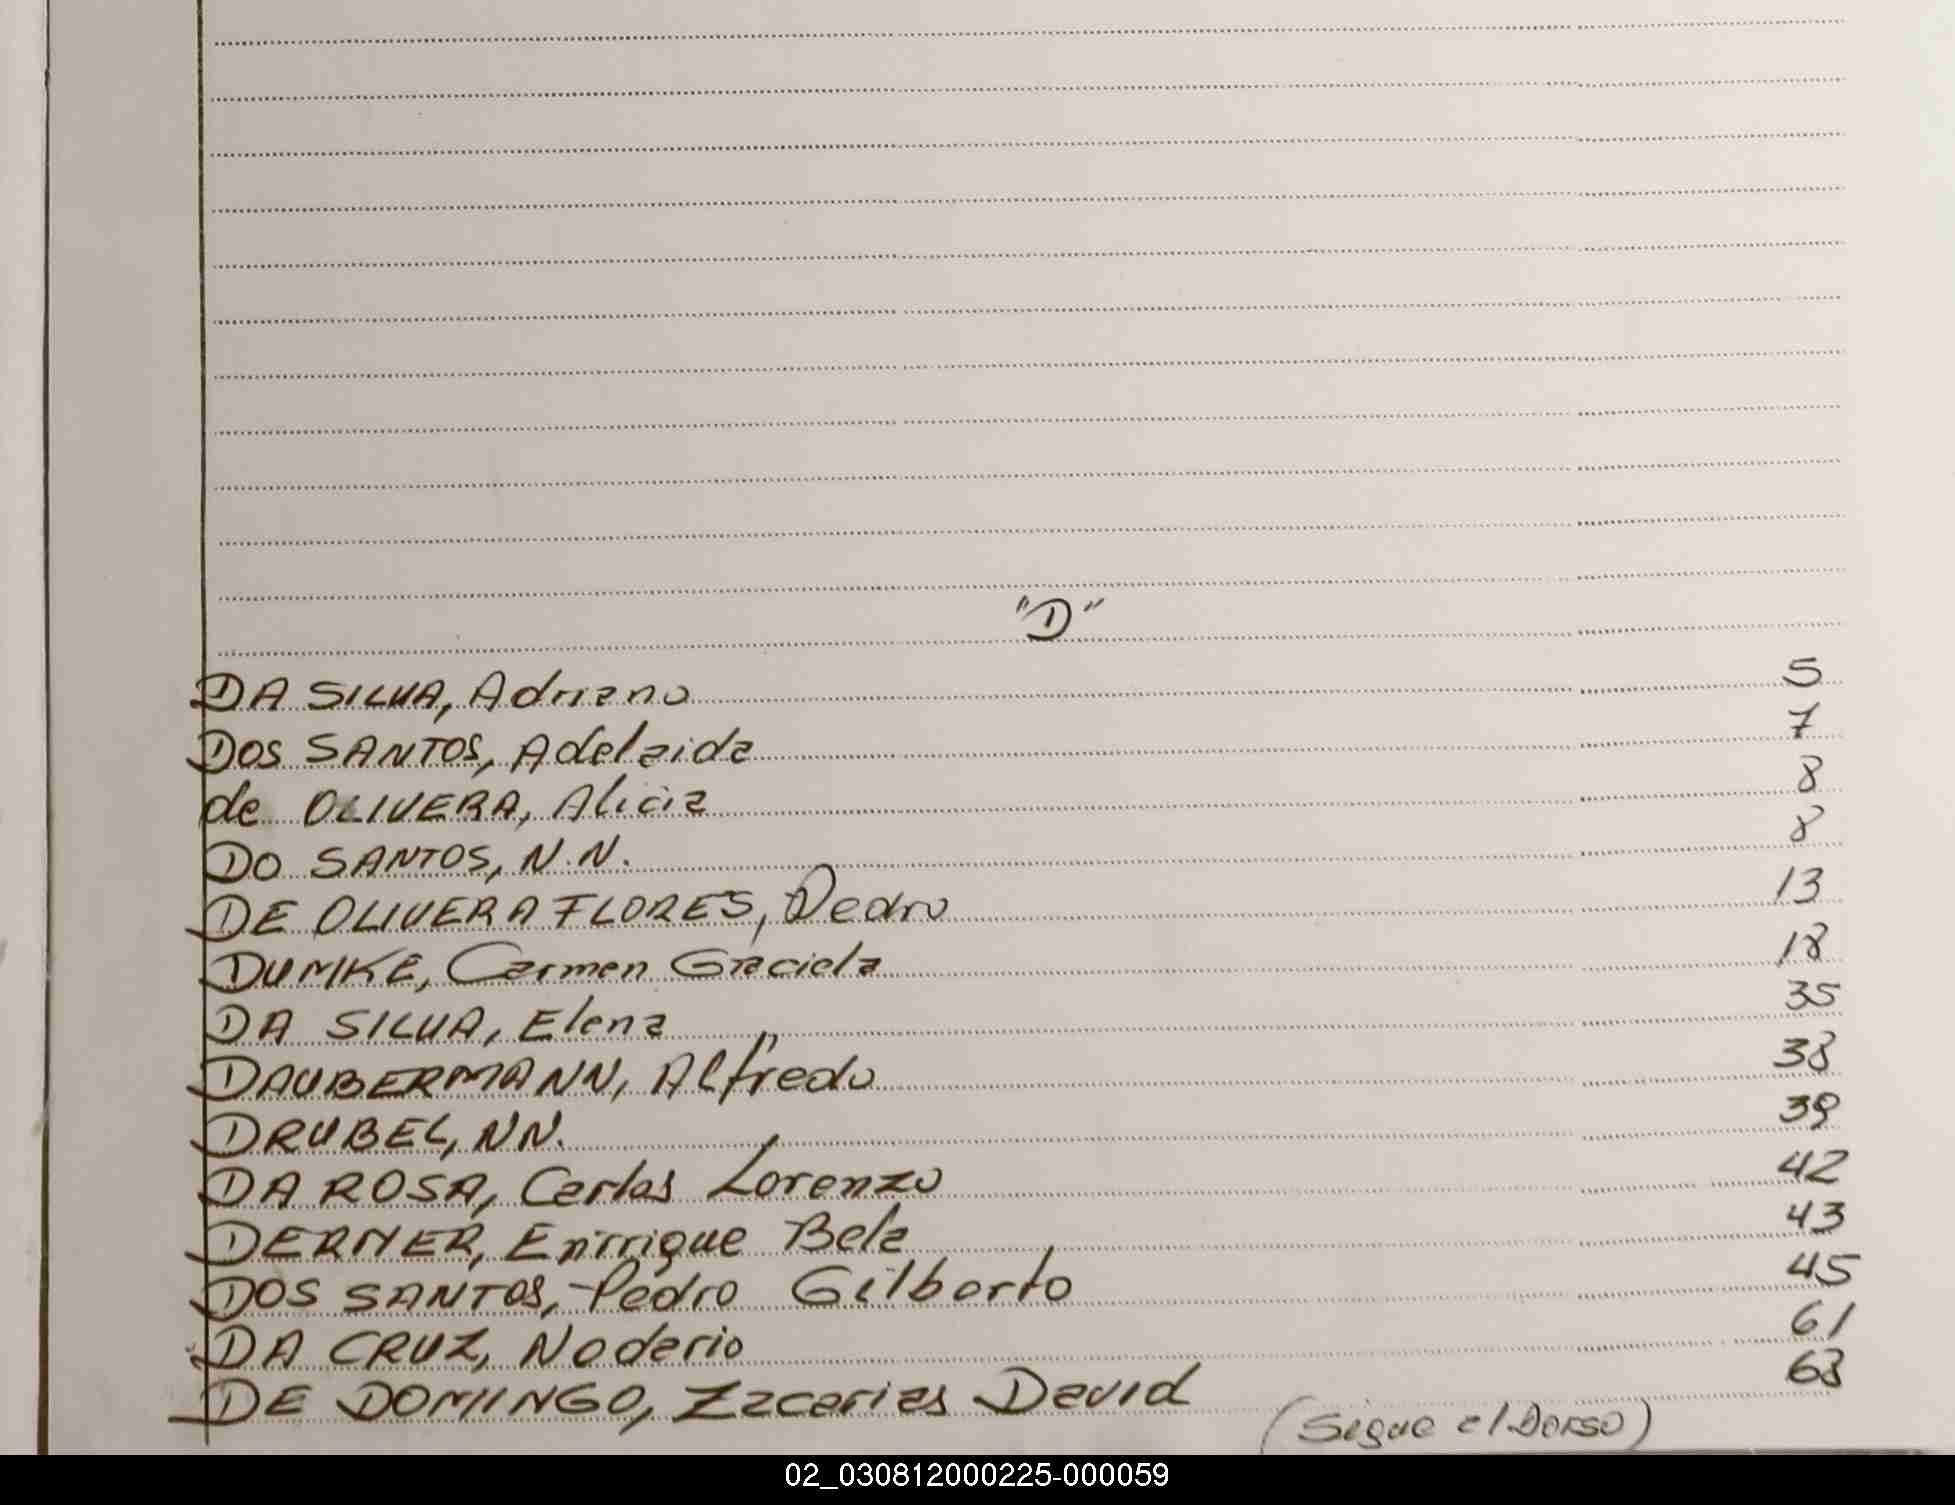 "D"
DA SILVA, Adriano 5
DOS SANTOS, Adelaida 7
de OLIVERA, Alicia 8
DO SANTOS, N.N. 8
DE OLIVERA FLORES, Pedro 13
DUMKE, Carmen Graciela 18
DA SILVA, Elena 35
DAUBERMANN, Alfredo 38
DRUBEL, NN. 39
DA ROSA, Carlos Lorenzo 42
DERNER, Enrrique Bela 43
DOS SANTOS, Pedro Gilberto 45
DA CRUZ, Noderio 61
DE DOMINGO, Zacarias David 63
(Sigue el Dorso)
02_030812000225-000059